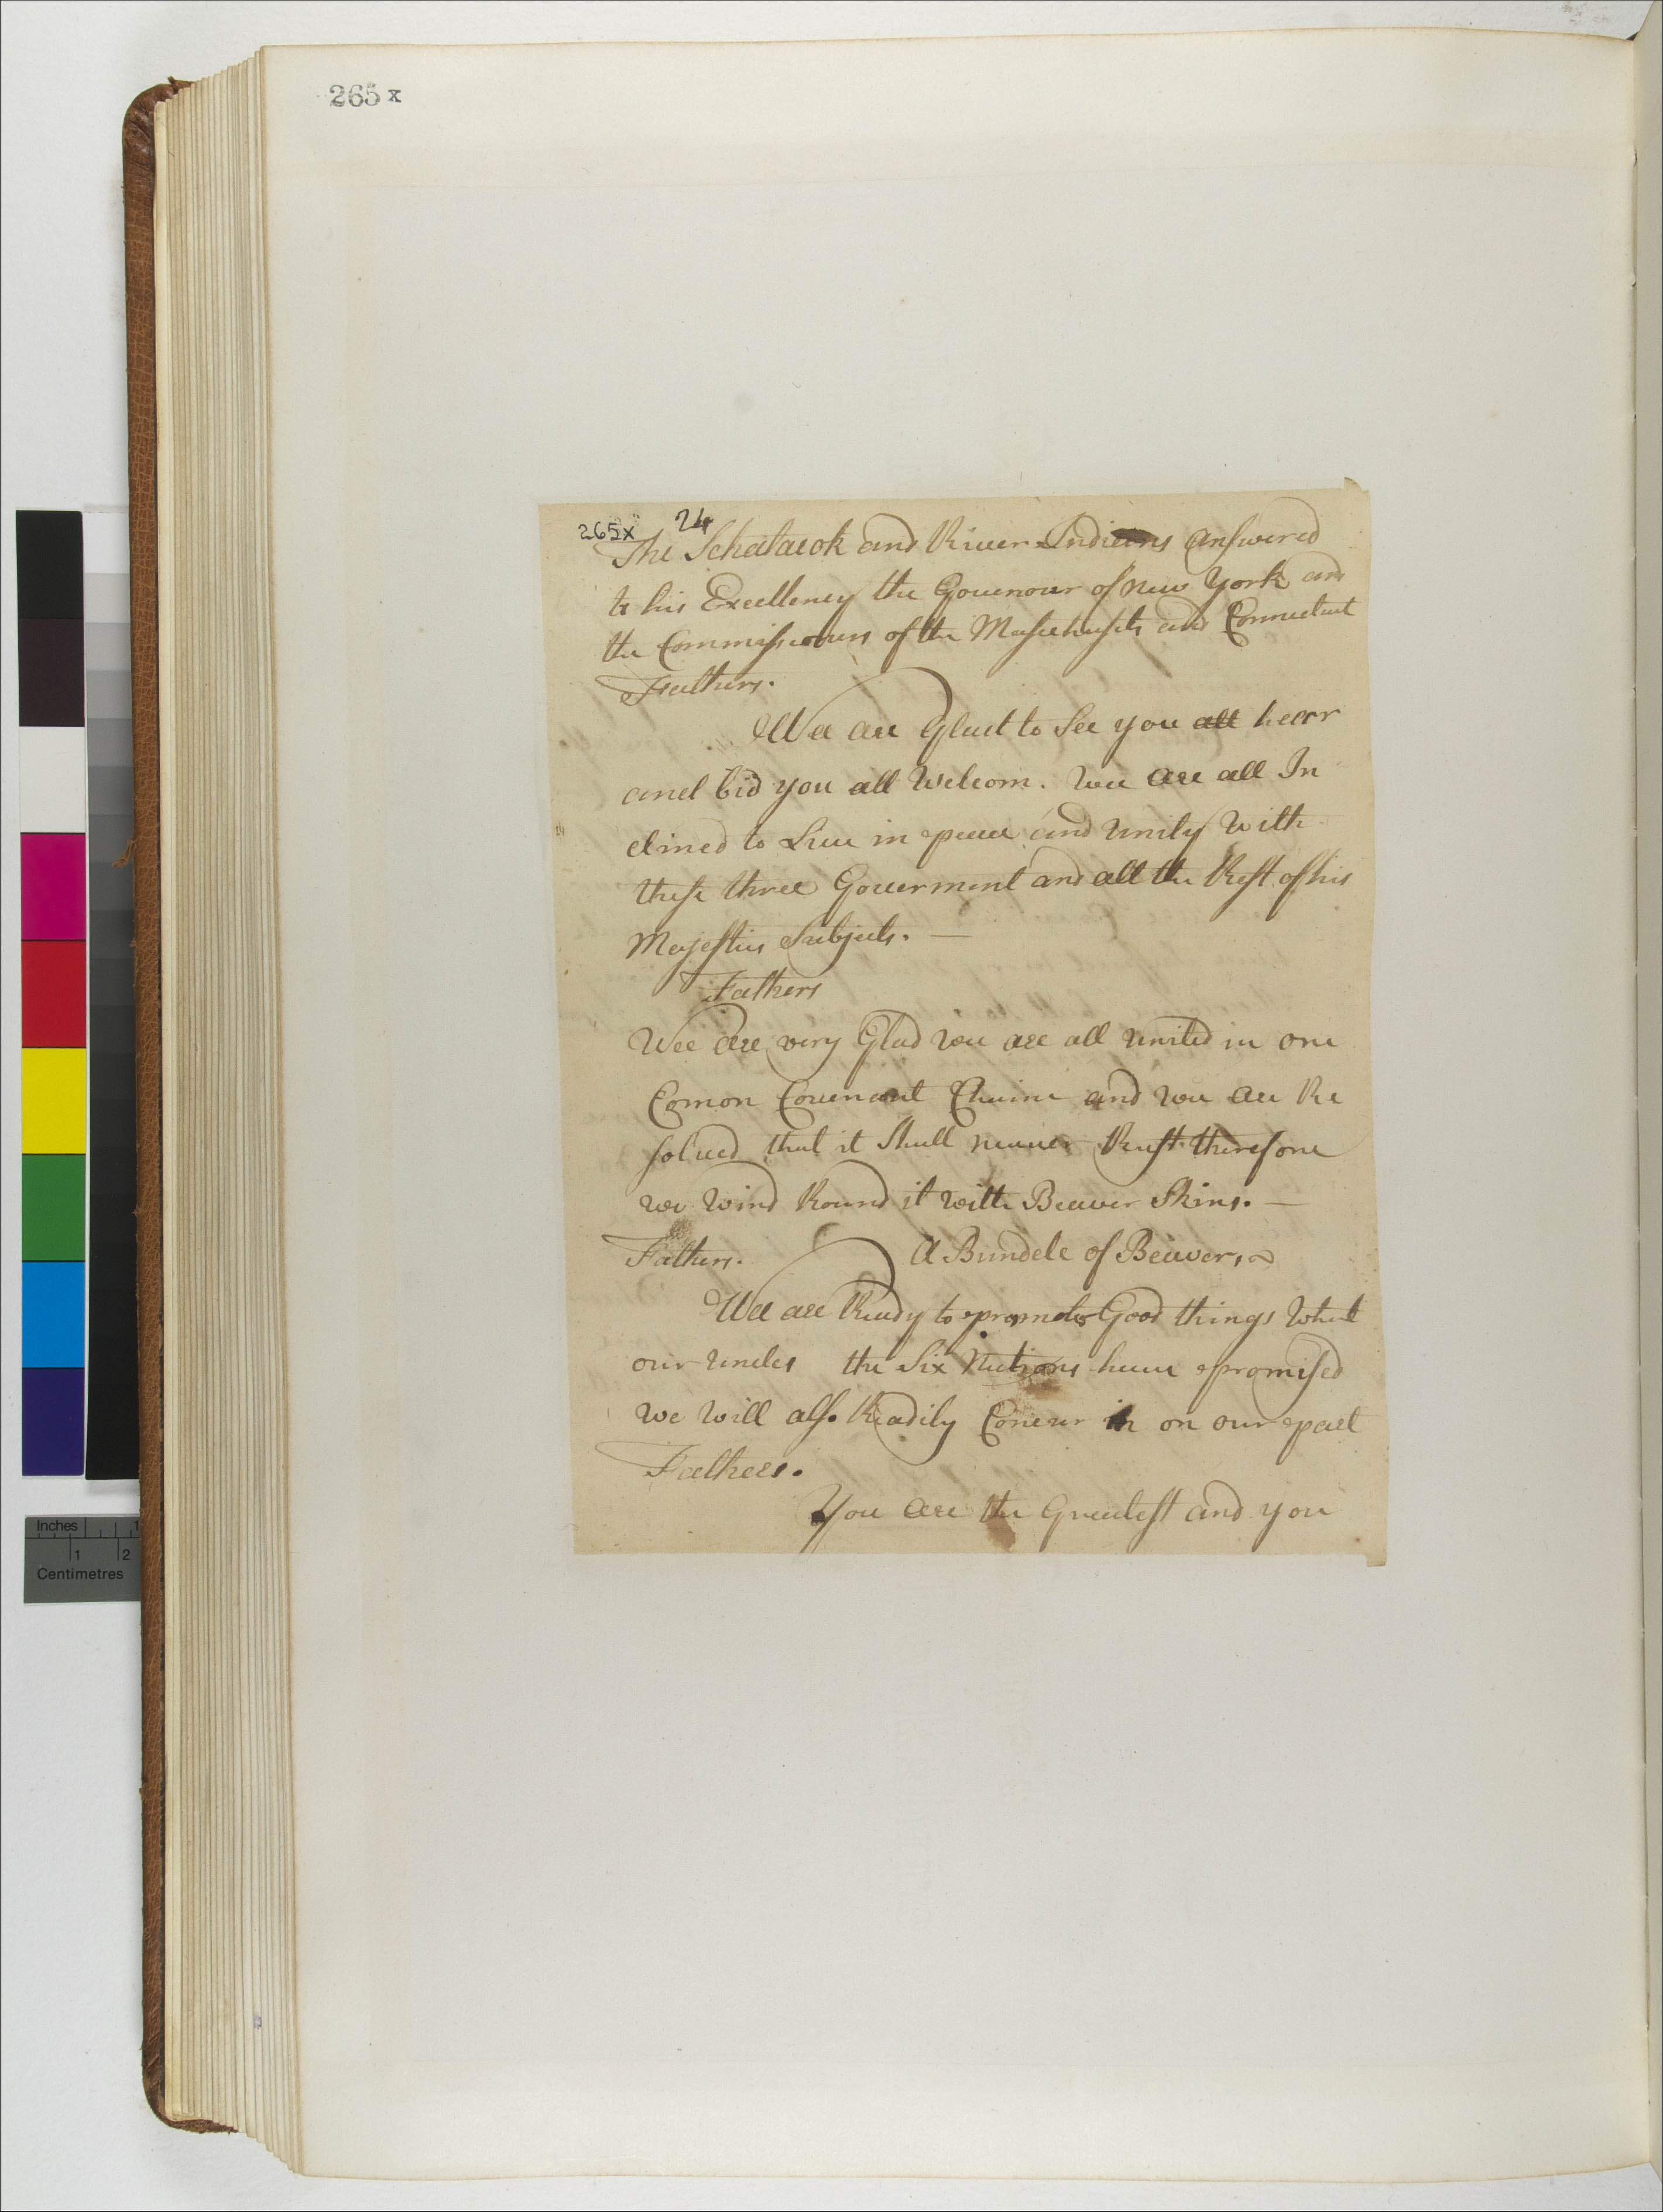 265 x
265x 24
The Schatacok and River Indians answered
to his Excellency the Gouenour of New York and
the Commissioners of the Masschusets and Connecticut
Fathers.
Wee are Glad to See you all hear
and bid you all Welcom. wee are all In
clined to Liue in peace and Unity With
these three Gouerment and all the Rest of his
Majesties Subjects. —
Fathers
Wee are very Glad wee are all united in one
Comon Couenant Chaine and wee are Re
solued that it Shall neuer Rust therefore
we Wind Round it with Beaver Skins. —
Fathers. A Bundele of Beavers
Wee are Ready to promote Good things What
our uncles the Six Nations haue promised
we Will also Readily Concur in on our part
Fathers.
You are the Greatest and you
Inches 1
1 2
Centimetres